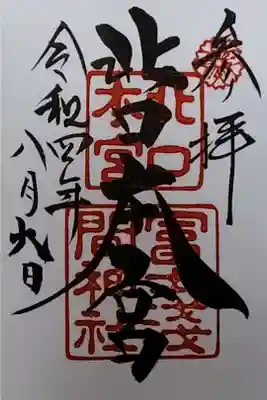 参拝
北口本宮
北口
本宮
冨士淺
間神社
令和四年
八月九日